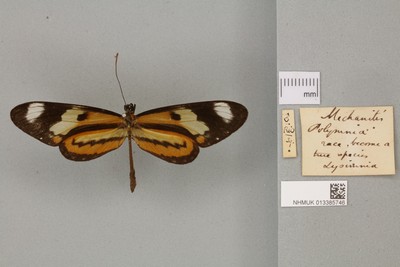 mm
Mechanitis
Polymnia
race, become a
true species
Lysimnia
NHMUK 013385746